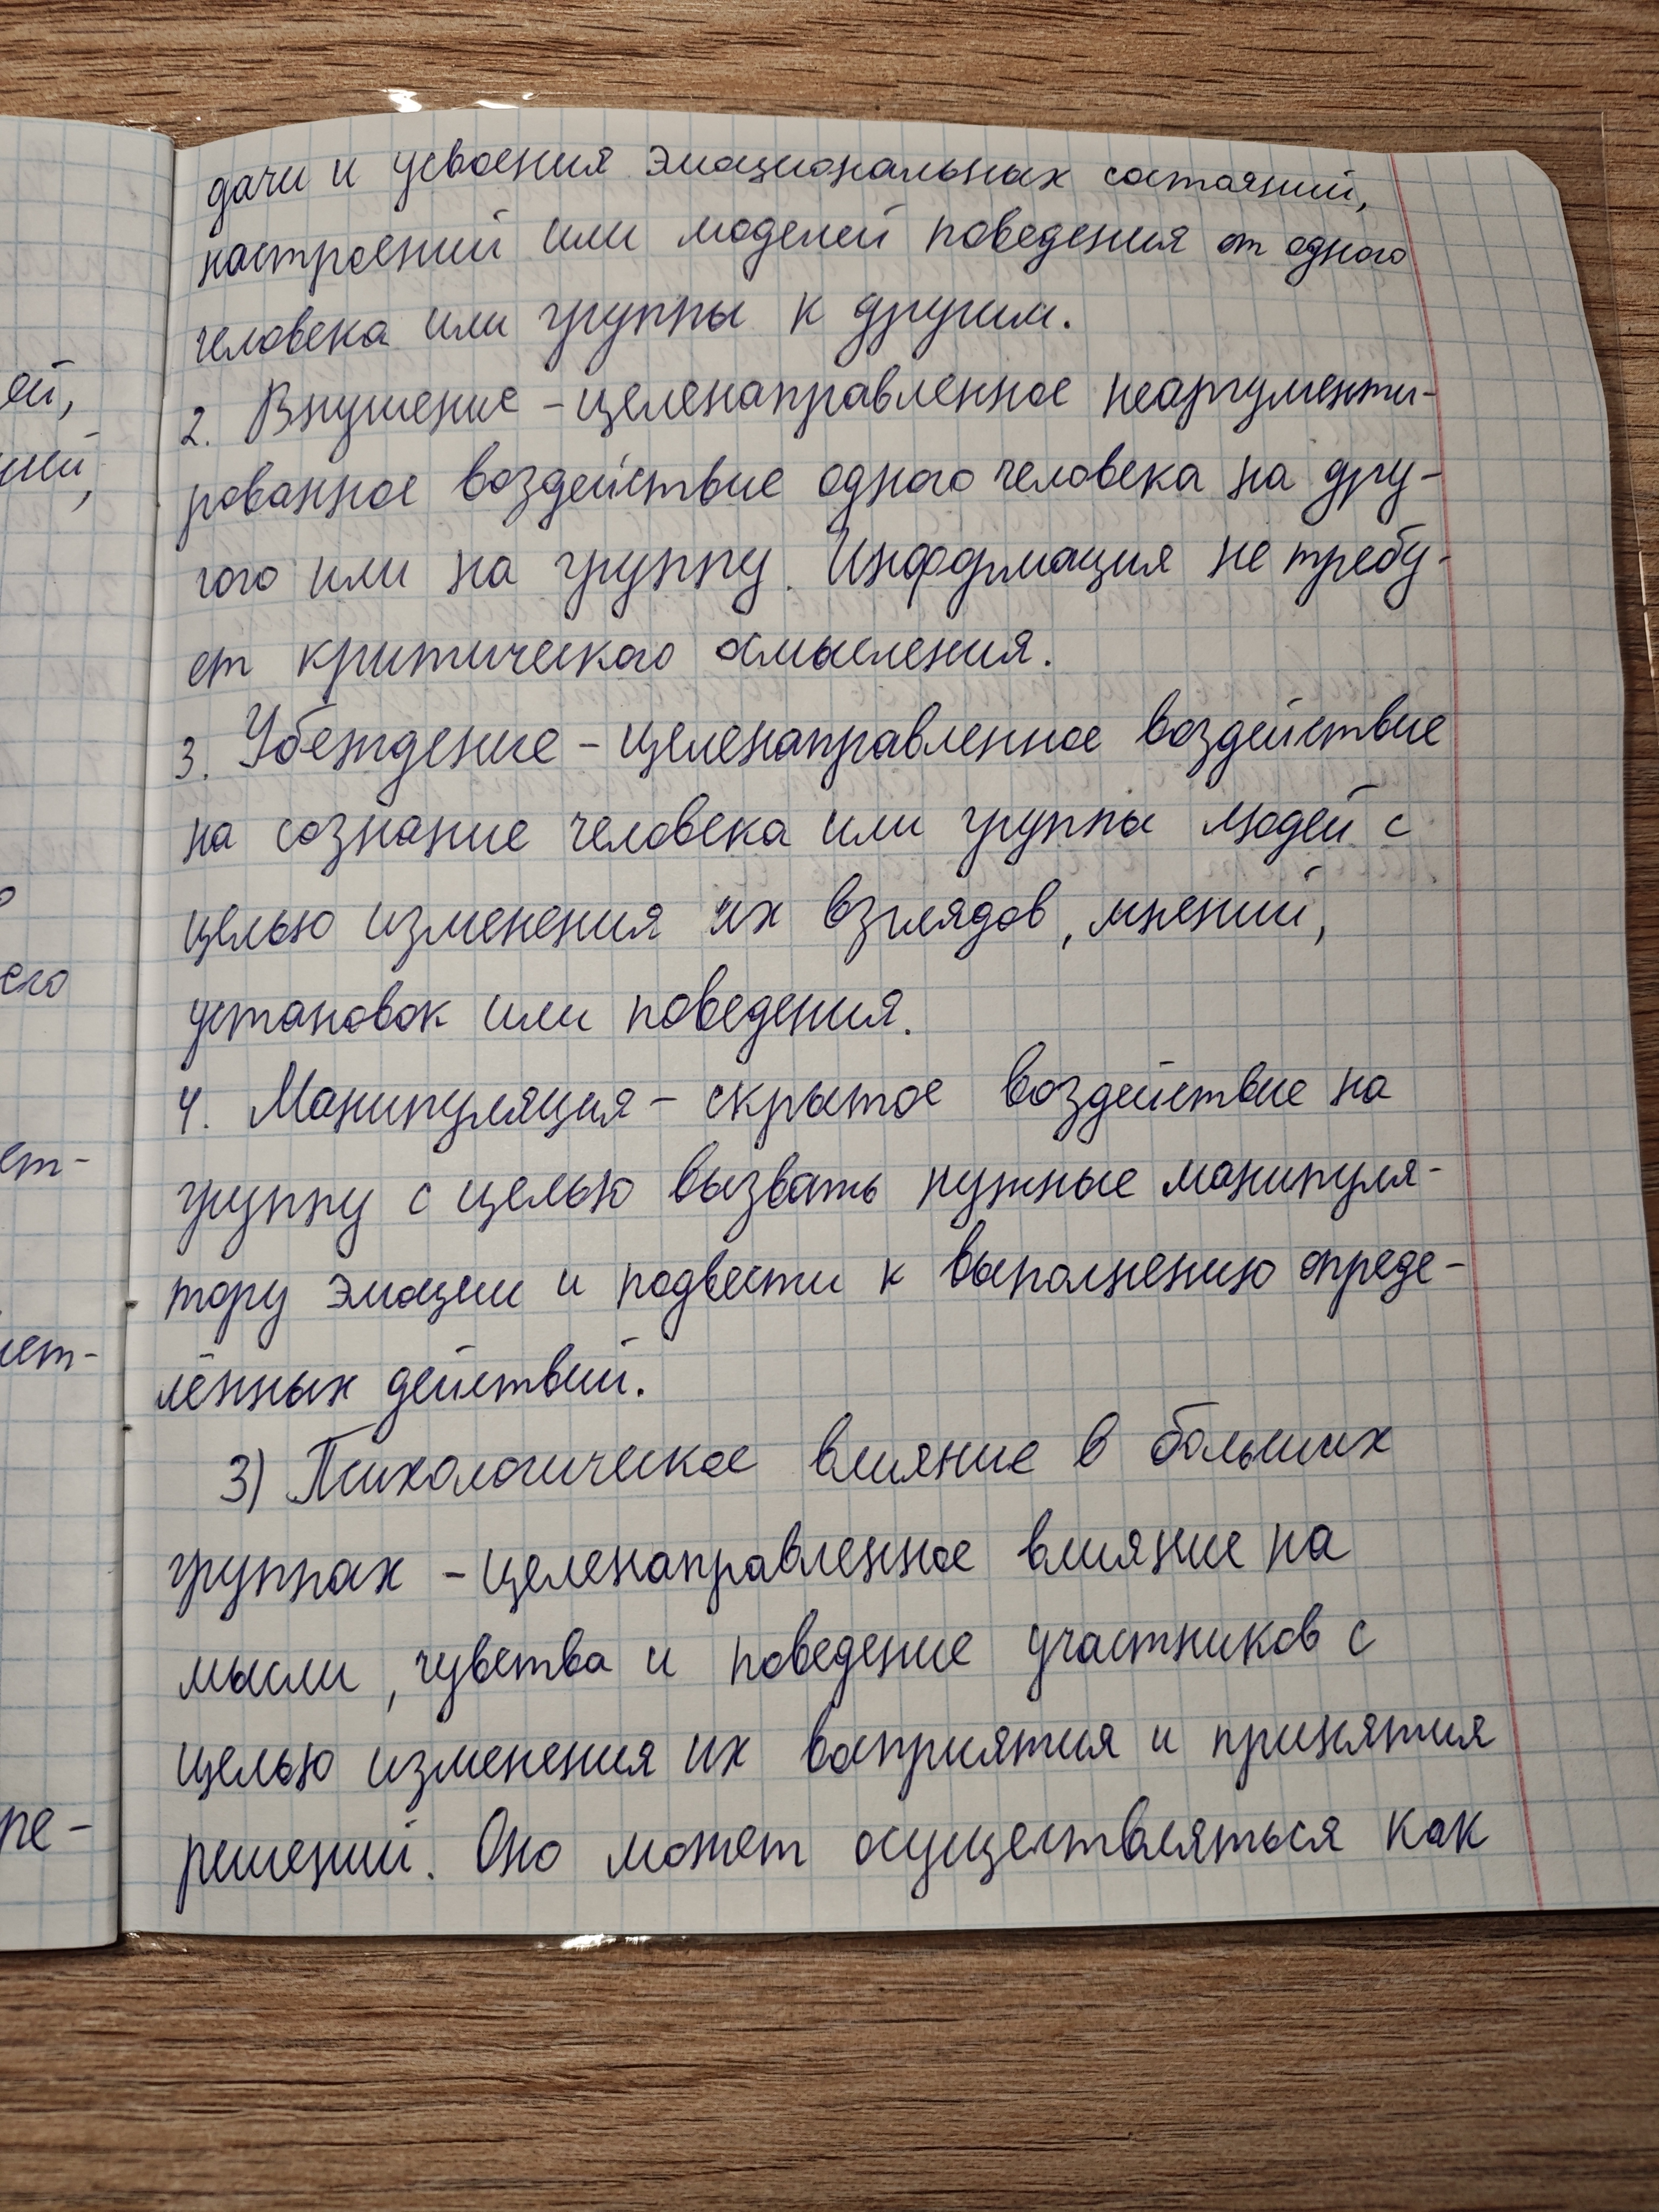 дачи и усвоения эмоциональных состояний,
настроений или моделей поведения от одного
человека или группы к другим.
2. Внушение – целенаправленное неаргументи-
рованное воздействие одного человека на дру-
гого или на группу. Информация не требу-
ет критического осмысления.
3. Убеждение – целенаправленное воздействие
на сознание человека или группы людей с
целью изменения их взглядов, мнений,
установок или поведения.
4. Манипуляция – скрытое воздействие на
группу с целью вызвать нужные манипуля-
тору эмоции и подвести к выполнению опреде-
лённых действий.
3) Психологическое влияние в больших
группах – целенаправленное влияние на
мысли, чувства и поведение участников с
целью изменения их восприятия и принятия
решений. Оно может осуществляться как